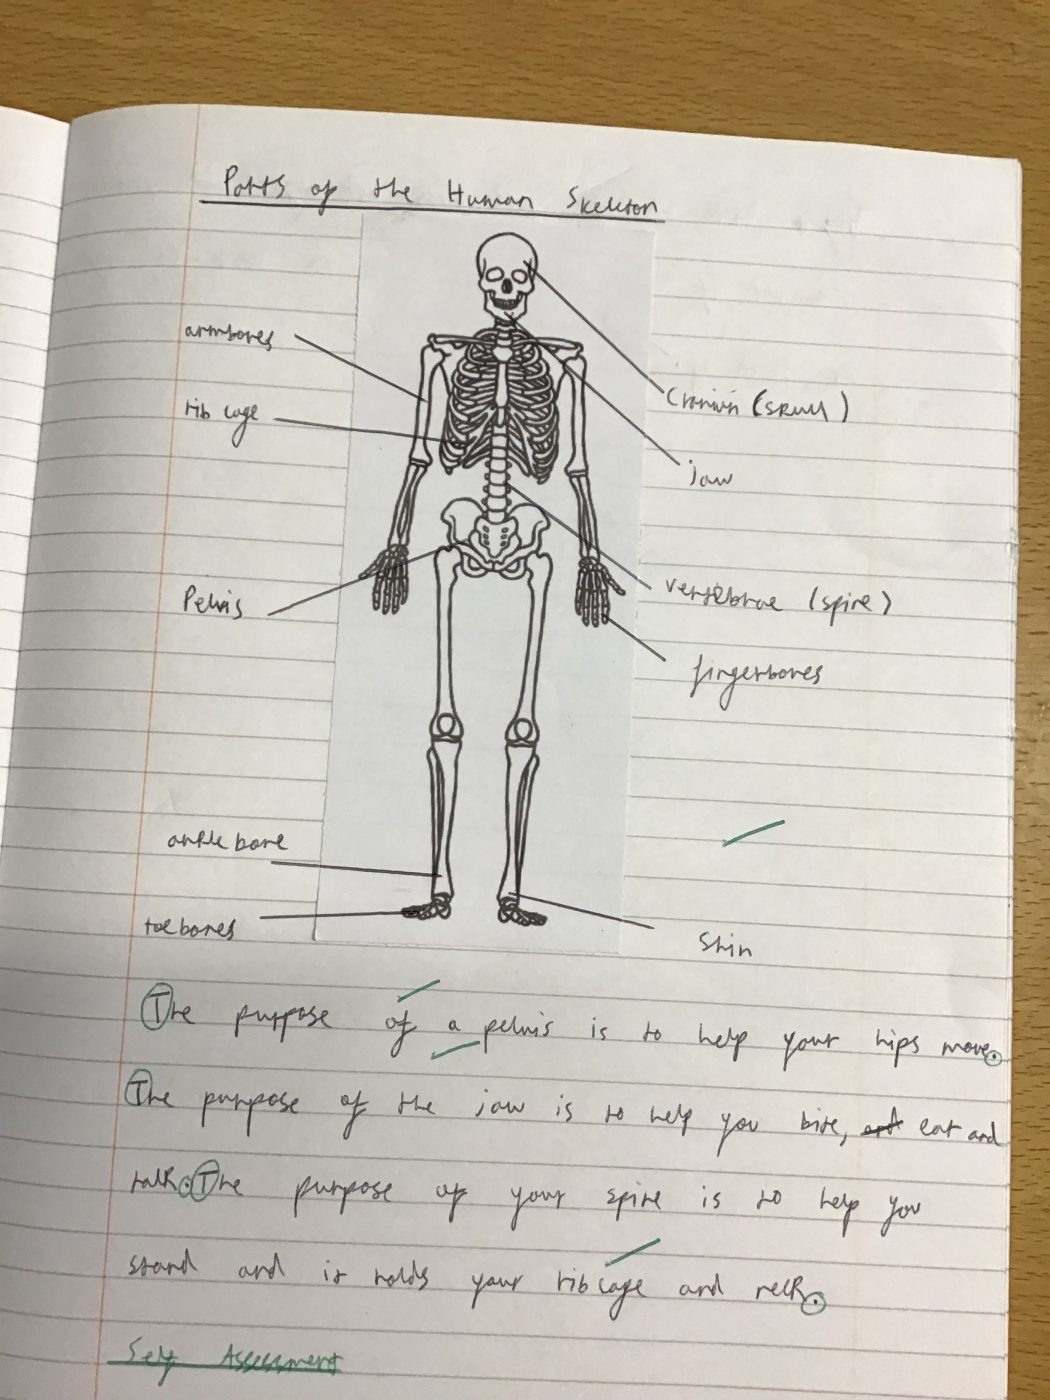 Parts of the Human Skeleton
armbones
rib cage
Cranium (skull)
jaw
Pelvis
vertebrae (spine)
fingerbones
ankle bone
toebones
Shin
The purpose of a pelvis is to help your hips move.
The purpose of the jaw is to help you bite, and eat and
talk. The purpose of your spine is to help you
stand and it holds your rib cage and neck.
Self Assessment